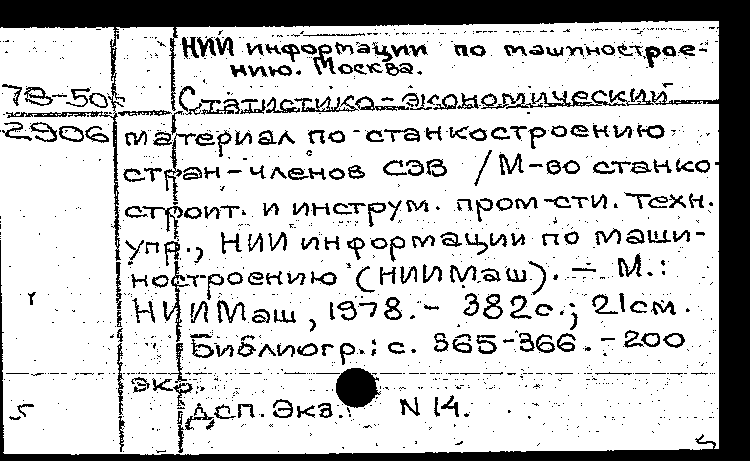 НИИ информации по машинострое-
нию. Москва.
78-50
Статистико-экономический
2906 материал по станкостроению
стран-членов СЭВ / М-во станко-
строит. и инструм. пром-сти. Техн.
упр., НИИ информации по маши-
ностроению (НИИМаш). — М.:
НИИМаш, 1978.- 382с.; 21см.
Библиогр.: с. 365-366. - 200
экз.
Дсп. Экз. N 14.
5